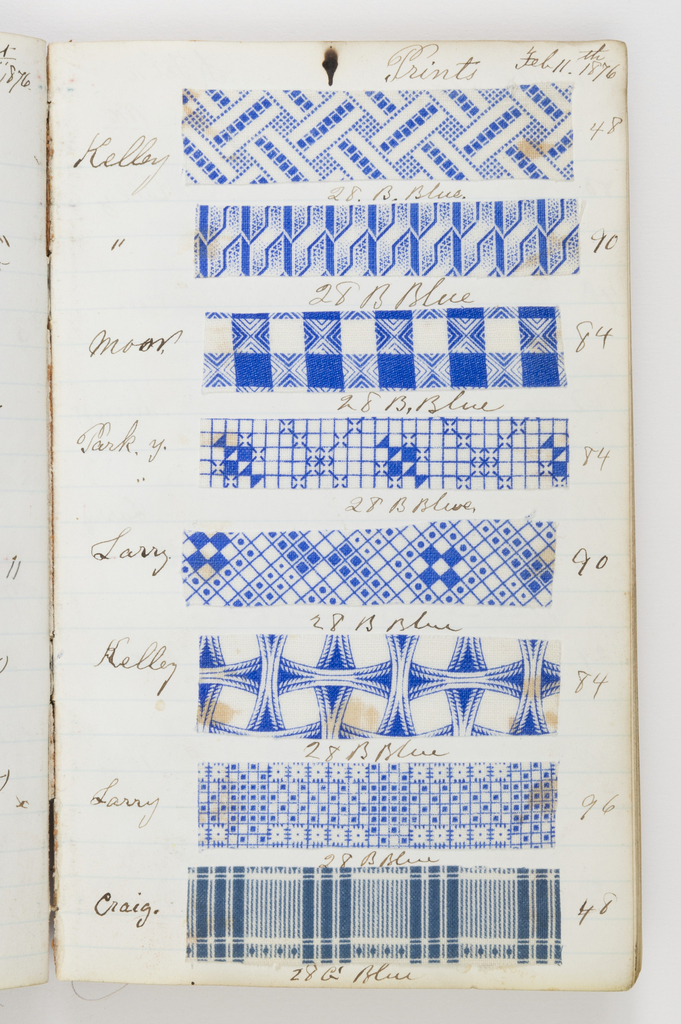 Prints Feb 11.th 1876
1876
Kelley 48
28. B. Blue.
" 90
28 B Blue
Moor 84
28 B. Blue
Park. y. 84
"
28 B Blue,
Larry 90
28 B Blue
Kelley 84
28 B Blue
Larry 96
28 B Blue
Craig. 48
28 G Blue